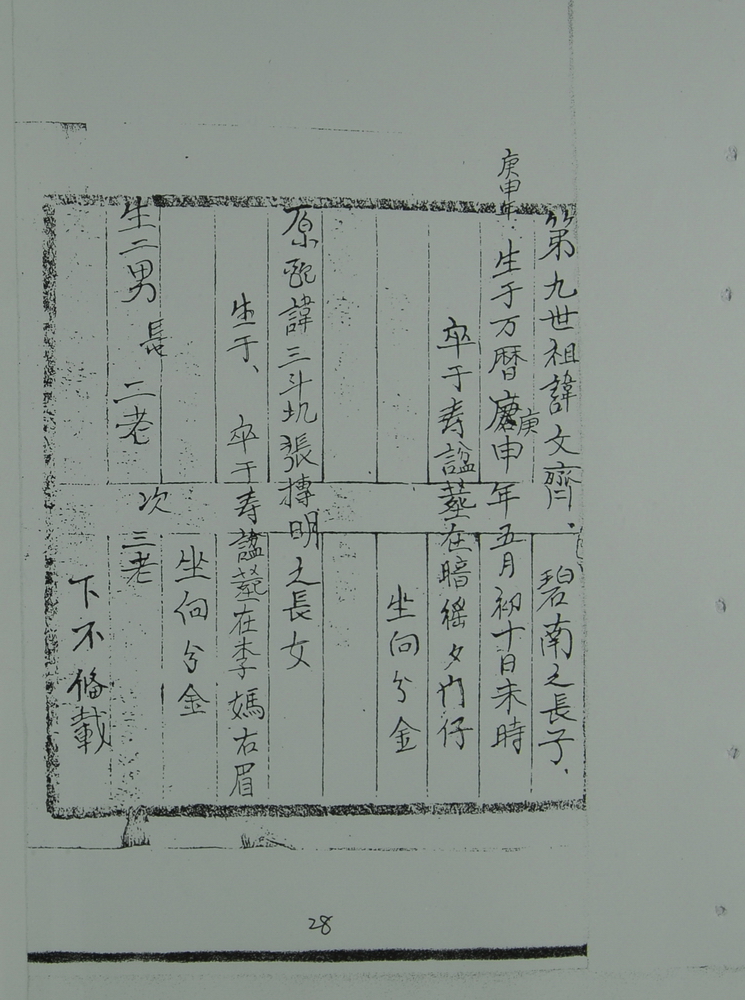 第九世祖諱文齊．碧南之長子．
庚申年．
生于万曆庚申年五月初十日未時
庚
卒于寿諡塟在暗徭夕内仔
坐向分金
原配諱三斗坑張摶明之長女
生于、卒于寿諡塟在李媽右眉
坐向分金
生二男 長 二老 次 三老
下不俻載
28